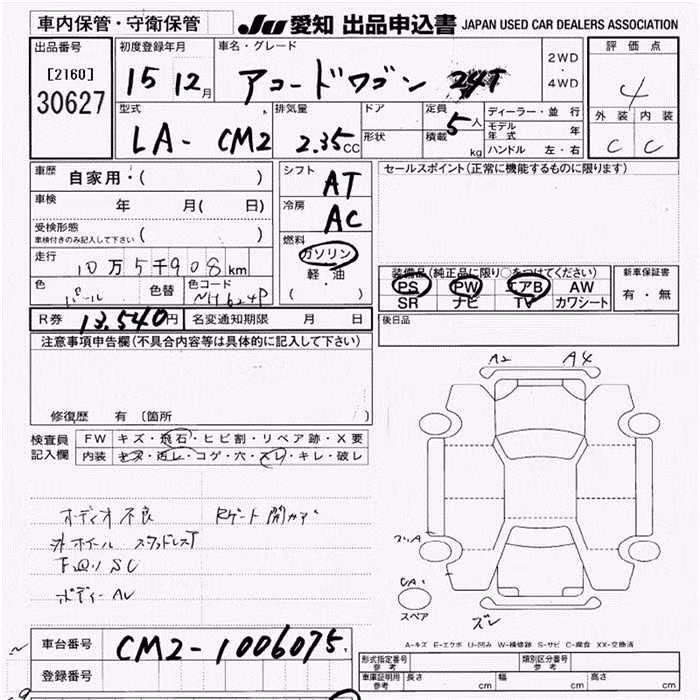 車内保管・守衛保管
JU 愛知 出品申込書 JAPAN USED CAR DEALERS ASSOCIATION
出品番号
[2160]
30627
初度登録年月
15 12月
車名・グレード
アコードワゴン 24T
2WD
・
4WD
評価点
4
外装 内装
C C
型式
LA- CM2
排気量
2.35CC
ドア
形状
定員
5人
積載
kg
ディーラー・並行
モデル年式 年
ハンドル 左・右
車歴
自家用・( )
車検
年 月( 日)
受検形態
車検付きのみ記入して下さい ( )
走行
10万5千908km
色
パール
色替
色コード
NH624P
シフト
AT
冷房
AC
燃料
ガソリン
軽・油
( )
セールスポイント(正常に機能するものに限ります)
装備品(純正品に限り○をつけてください)
PS PW エアB AW
SR ナビ TV カワシート
新車保証書
有・無
R券 13,540円 名変通知期限 月 日
後日品
注意事項申告欄(不具合内容等は具体的に記入して下さい)
修復歴 有 〔箇所 〕
検査員記入欄
FW キズ・飛石・ヒビ割・リペア跡・X要
内装 キズ・汚レ・コゲ・穴・スレ・キレ・破レ
オーディオ不良 Rゲート開
外ホイール スタッドレスT
下廻りSC
ボディー
A2 A4
スペア
ズレ
A-キズ E-エクボ U-凹み W-補修跡 S-サビ C-腐食 XX-交換済
車台番号 CM2-1006075
登録番号
形式指定番号
参考
類別区分番号
参考
車庫証明用
参考
長さ cm 幅 cm 高さ cm